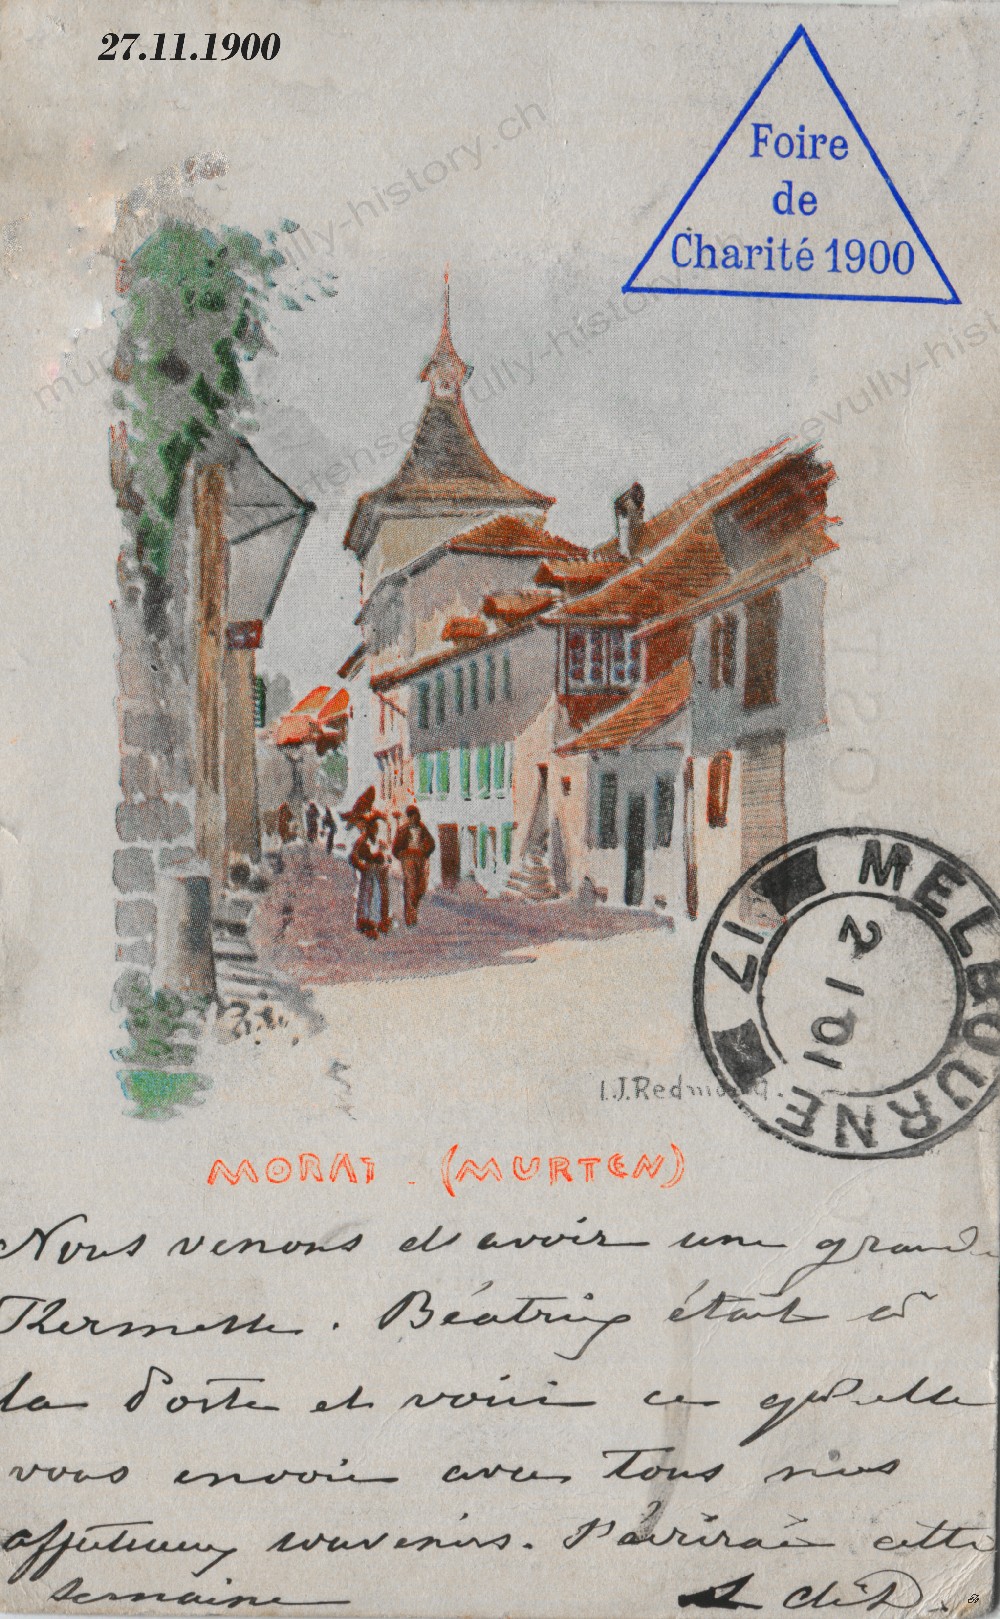 27.11.1900
Foire
de
Charité 1900
murtenseevully-history.ch
murtenseevully-history.ch
murtenseevully-history.ch
17 MELBOURNE
2 1 01
I.J.Redmond.
MORAT. (MURTEN)
Nous venons d'avoir une grande
Kermesse. Béatrix était à
la Poste et voici ce qu'elle
vous envoie avec tous nos
affectueux souvenirs. J'écrirai cette
semaine